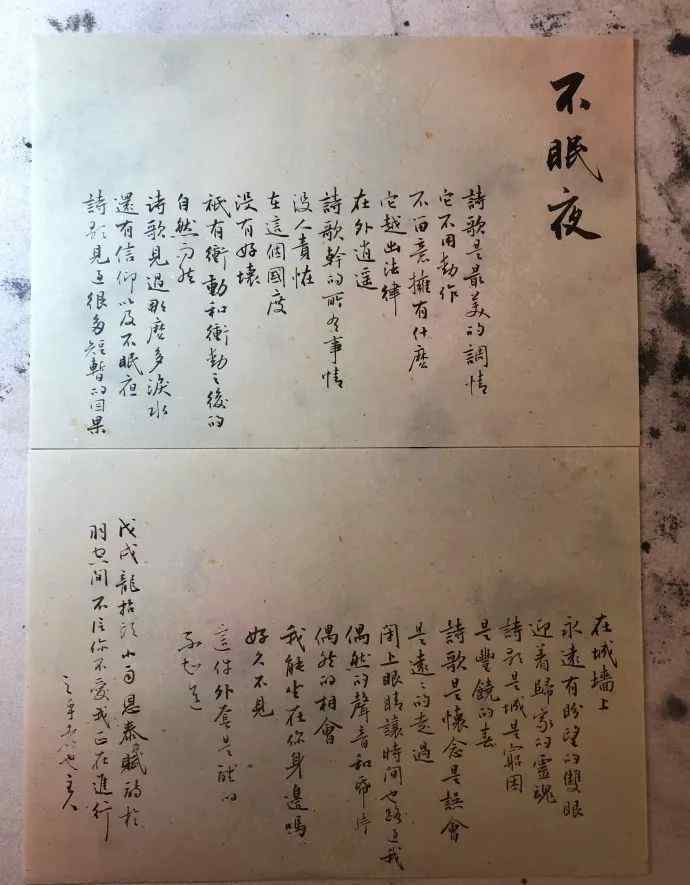 不眠夜
詩歌是最美的調情
它不用動作
不留意擁有什麼
它越出法律
在外逍遥
詩歌幹的所有事情
没人責怪
在這個國度
没有好壞
祇有衝動和衝動之後的
自然而然
诗歌見過那麽多淚水
還有信仰以及不眠夜
詩歌見過很多短暫的因果
在城墙上
永遠有盼望的雙眼
迎着歸家的靈魂
詩歌是城是窮困
是豐饒的春
詩歌是懷念是誤會
是遠遠的走過
閉上眼睛讓時間也路過我
偶然的聲音和
偶然的相會
我能坐在你身邊嗎
好久不見
這件外套是誰的
不知道
戊戌龍抬頭小雨恩泰賦詩於
羽空間不信你不愛我正在進行
主人